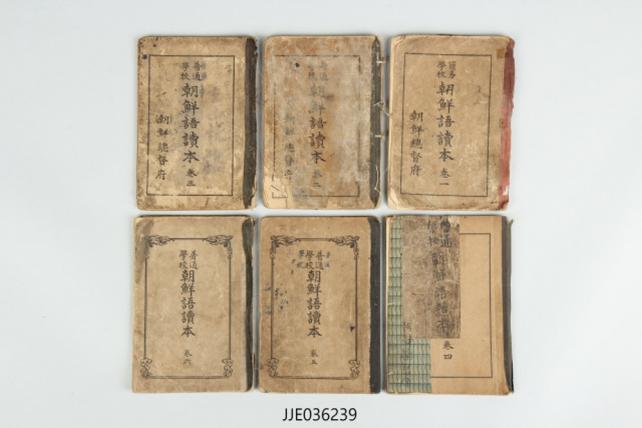 普通
學校
朝鮮語讀本 卷三
朝鮮總督府
普通
學校
朝鮮語讀本 卷二
朝鮮總督府
簡易
學校
朝鮮語讀本 卷一
朝鮮總督府
普通
學校
朝鮮語讀本 卷六
普通
學校
朝鮮語讀本 卷五
卷四
JJE036239